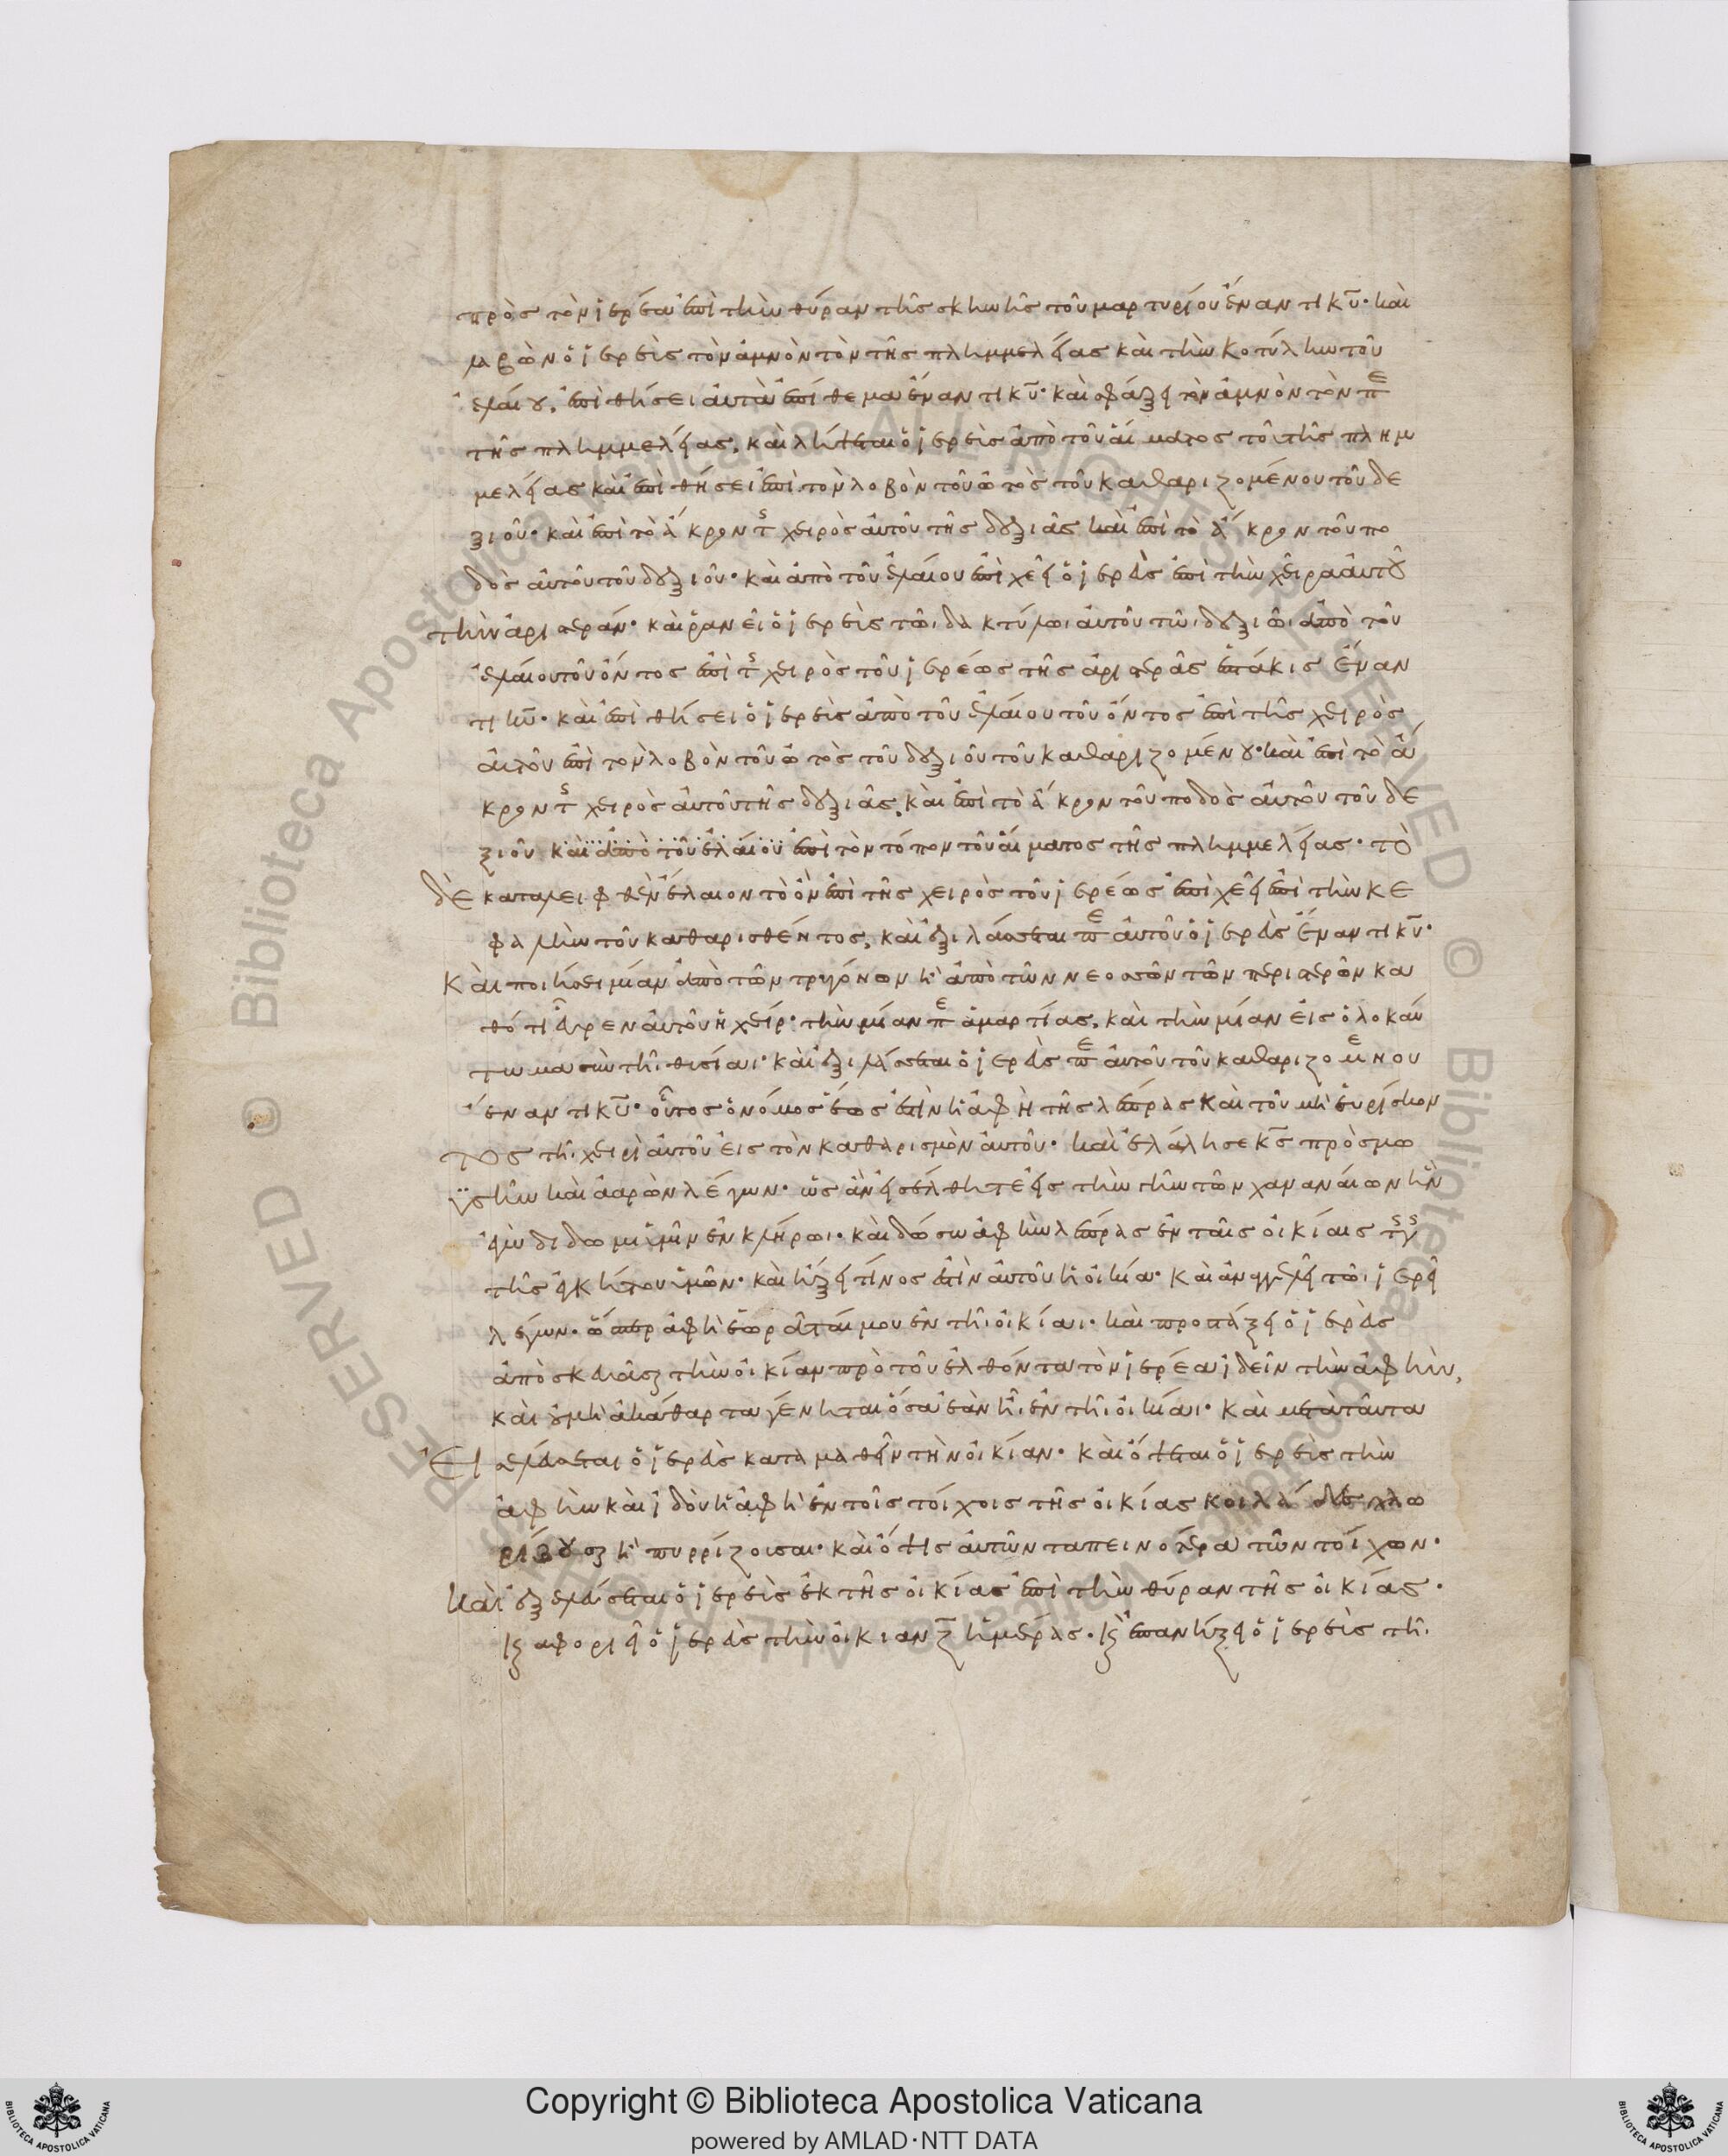 πρὸς τὸν ἱερέα ἐπὶ τὴν θύραν τῆς σκηνῆς τοῦ μαρτυρίου ἔναντι κῦ· καὶ
λαβὼν ὁ ἱερεὺς τὸν ἀμνὸν τὸν τῆς πλημμελείας καὶ τὴν κοτύλην τοῦ
ἐλαίου, ἐπιθήσει αὐτὰ ἐπίθεμα ἔναντι κῦ· καὶ σφάξει τὸν ἀμνὸν τὸν πε
τῆς πλημμελείας, καὶ λήψεται ὁ ἱερεὺς ἀπὸ τοῦ αἵματος τοῦ τῆς πλημ
μελείας καὶ ἐπιθήσει ἐπὶ τὸν λοβὸν τοῦ ὠτὸς τοῦ καθαριζομένου τοῦ δε
ξιοῦ· καὶ ἐπὶ τὸ ἄκρον τς χειρὸς αὐτοῦ τῆς δεξιᾶς καὶ ἐπὶ τὸ ἄκρον τοῦ πο
δὸς αὐτοῦ τοῦ δεξιοῦ· καὶ ἀπὸ τοῦ ἐλαίου ἐπιχεεῖ ὁ ἱερεὺς ἐπὶ τὴν χεῖρα αὐτοῦ
τὴν ἀριστεράν· καὶ ῥανεῖ ὁ ἱερεὺς τῶι δακτύλωι αὐτοῦ τῶι δεξιῶι ἀπὸ τοῦ
ἐλαίου τοῦ ὄντος ἐπὶ τς χειρὸς τοῦ ἱερέως τῆς ἀριστερᾶς ἑπτάκις ἔναν
τι κῦ· καὶ ἐπιθήσει ὁ ἱερεὺς ἀπὸ τοῦ ἐλαίου τοῦ ὄντος ἐπὶ τῆς χειρὸς
αὐτοῦ ἐπὶ τὸν λοβὸν τοῦ ὠτὸς τοῦ δεξιοῦ τοῦ καθαριζομένου· καὶ ἐπὶ τὸ ἄ
κρον τς χειρὸς αὐτοῦ τῆς δεξιᾶς, καὶ ἐπὶ τὸ ἄκρον τοῦ ποδὸς αὐτοῦ τοῦ δε
ξιοῦ καὶ ἀπὸ τοῦ ἐλαίου ἐπὶ τὸν τόπον τοῦ αἵματος τῆς πλημμελείας· τὸ
δὲ καταλειφθὲν ἔλαιον τὸ ὂν ἐπὶ τῆς χειρὸς τοῦ ἱερέως ἐπιχεεῖ ἐπὶ τὴν κε
φαλὴν τοῦ καθαρισθέντος, καὶ ἐξιλάσεται πε αὐτοῦ ὁ ἱερεὺς ἔναντι κῦ·
Καὶ ποιήσει μίαν ἀπὸ τῶν τρυγόνων ἢ ἀπὸ τῶν νεοσσῶν τῶν περιστερῶν κα
θότι εὗρεν αὐτοῦ ἡ χείρ· τὴν μίαν πε ἁμαρτίας, καὶ τὴν μίαν εἰς ὁλοκαύ
τωμα σὺν τῆι θυσίαι· καὶ ἐξιλάσεται ὁ ἱερεὺς πε αὐτοῦ τοῦ καθαριζομένου
ἔναντι κῦ· οὗτος ὁ νόμος ἐν ὧι ἐστὶν ἡ ἁφὴ τῆς λέπρας καὶ τοῦ μὴ εὑρίσκον
τος τῆι χειρὶ αὐτοῦ εἰς τὸν καθαρισμὸν αὐτοῦ· καὶ ἐλάλησε κς πρὸς μω
ϋσῆν καὶ ἀαρὼν λέγων· ὡς ἂν εἰσέλθητε εἰς τὴν γῆν τῶν χαναναίων ἣν
ἐγὼ δίδωμι ὑμῖν ἐν κλήρωι· καὶ δώσω ἁφὴν λέπρας ἐν ταῖς οἰκίαις τς γς
τῆς ἐγκτήτου ὑμῶν· καὶ ἥξει τίνος ἐστὶν αὐτοῦ ἡ οἰκία· καὶ ἀναγγελεῖ τῶι ἱερεῖ
λέγων· ὥσπερ ἁφὴ ἑώραταί μου ἐν τῆι οἰκίαι· καὶ προστάξει ὁ ἱερεὺς
ἀποσκευάσαι τὴν οἰκίαν πρὸ τοῦ ἐλθόντα τὸν ἱερέα ἰδεῖν τὴν ἁφήν,
καὶ οὐ μὴ ἀκάθαρτα γένηται ὅσα ἐὰν ἦι ἐν τῆι οἰκίαι· καὶ μετὰ ταῦτα
εἰσελεύσεται ὁ ἱερεὺς καταμαθεῖν τὴν οἰκίαν· καὶ ὄψεται ὁ ἱερεὺς τὴν
ἁφὴν καὶ ἰδοὺ ἡ ἁφὴ ἐν τοῖς τοίχοις τῆς οἰκίας κοιλάδας χλω
ριζούσας ἢ πυρριζούσας· καὶ ὄψις αὐτῶν ταπεινοτέρα τῶν τοίχων·
Καὶ ἐξελεύσεται ὁ ἱερεὺς ἐκ τῆς οἰκίας ἐπὶ τὴν θύραν τῆς οἰκίας·
κ αφοριεῖ ὁ ἱερεὺς τὴν οἰκίαν ζ ἡμέρας· κ ἐπανήξει ὁ ἱερεὺς τῆι
Copyright © Biblioteca Apostolica Vaticana
powered by AMLAD·NTT DATA